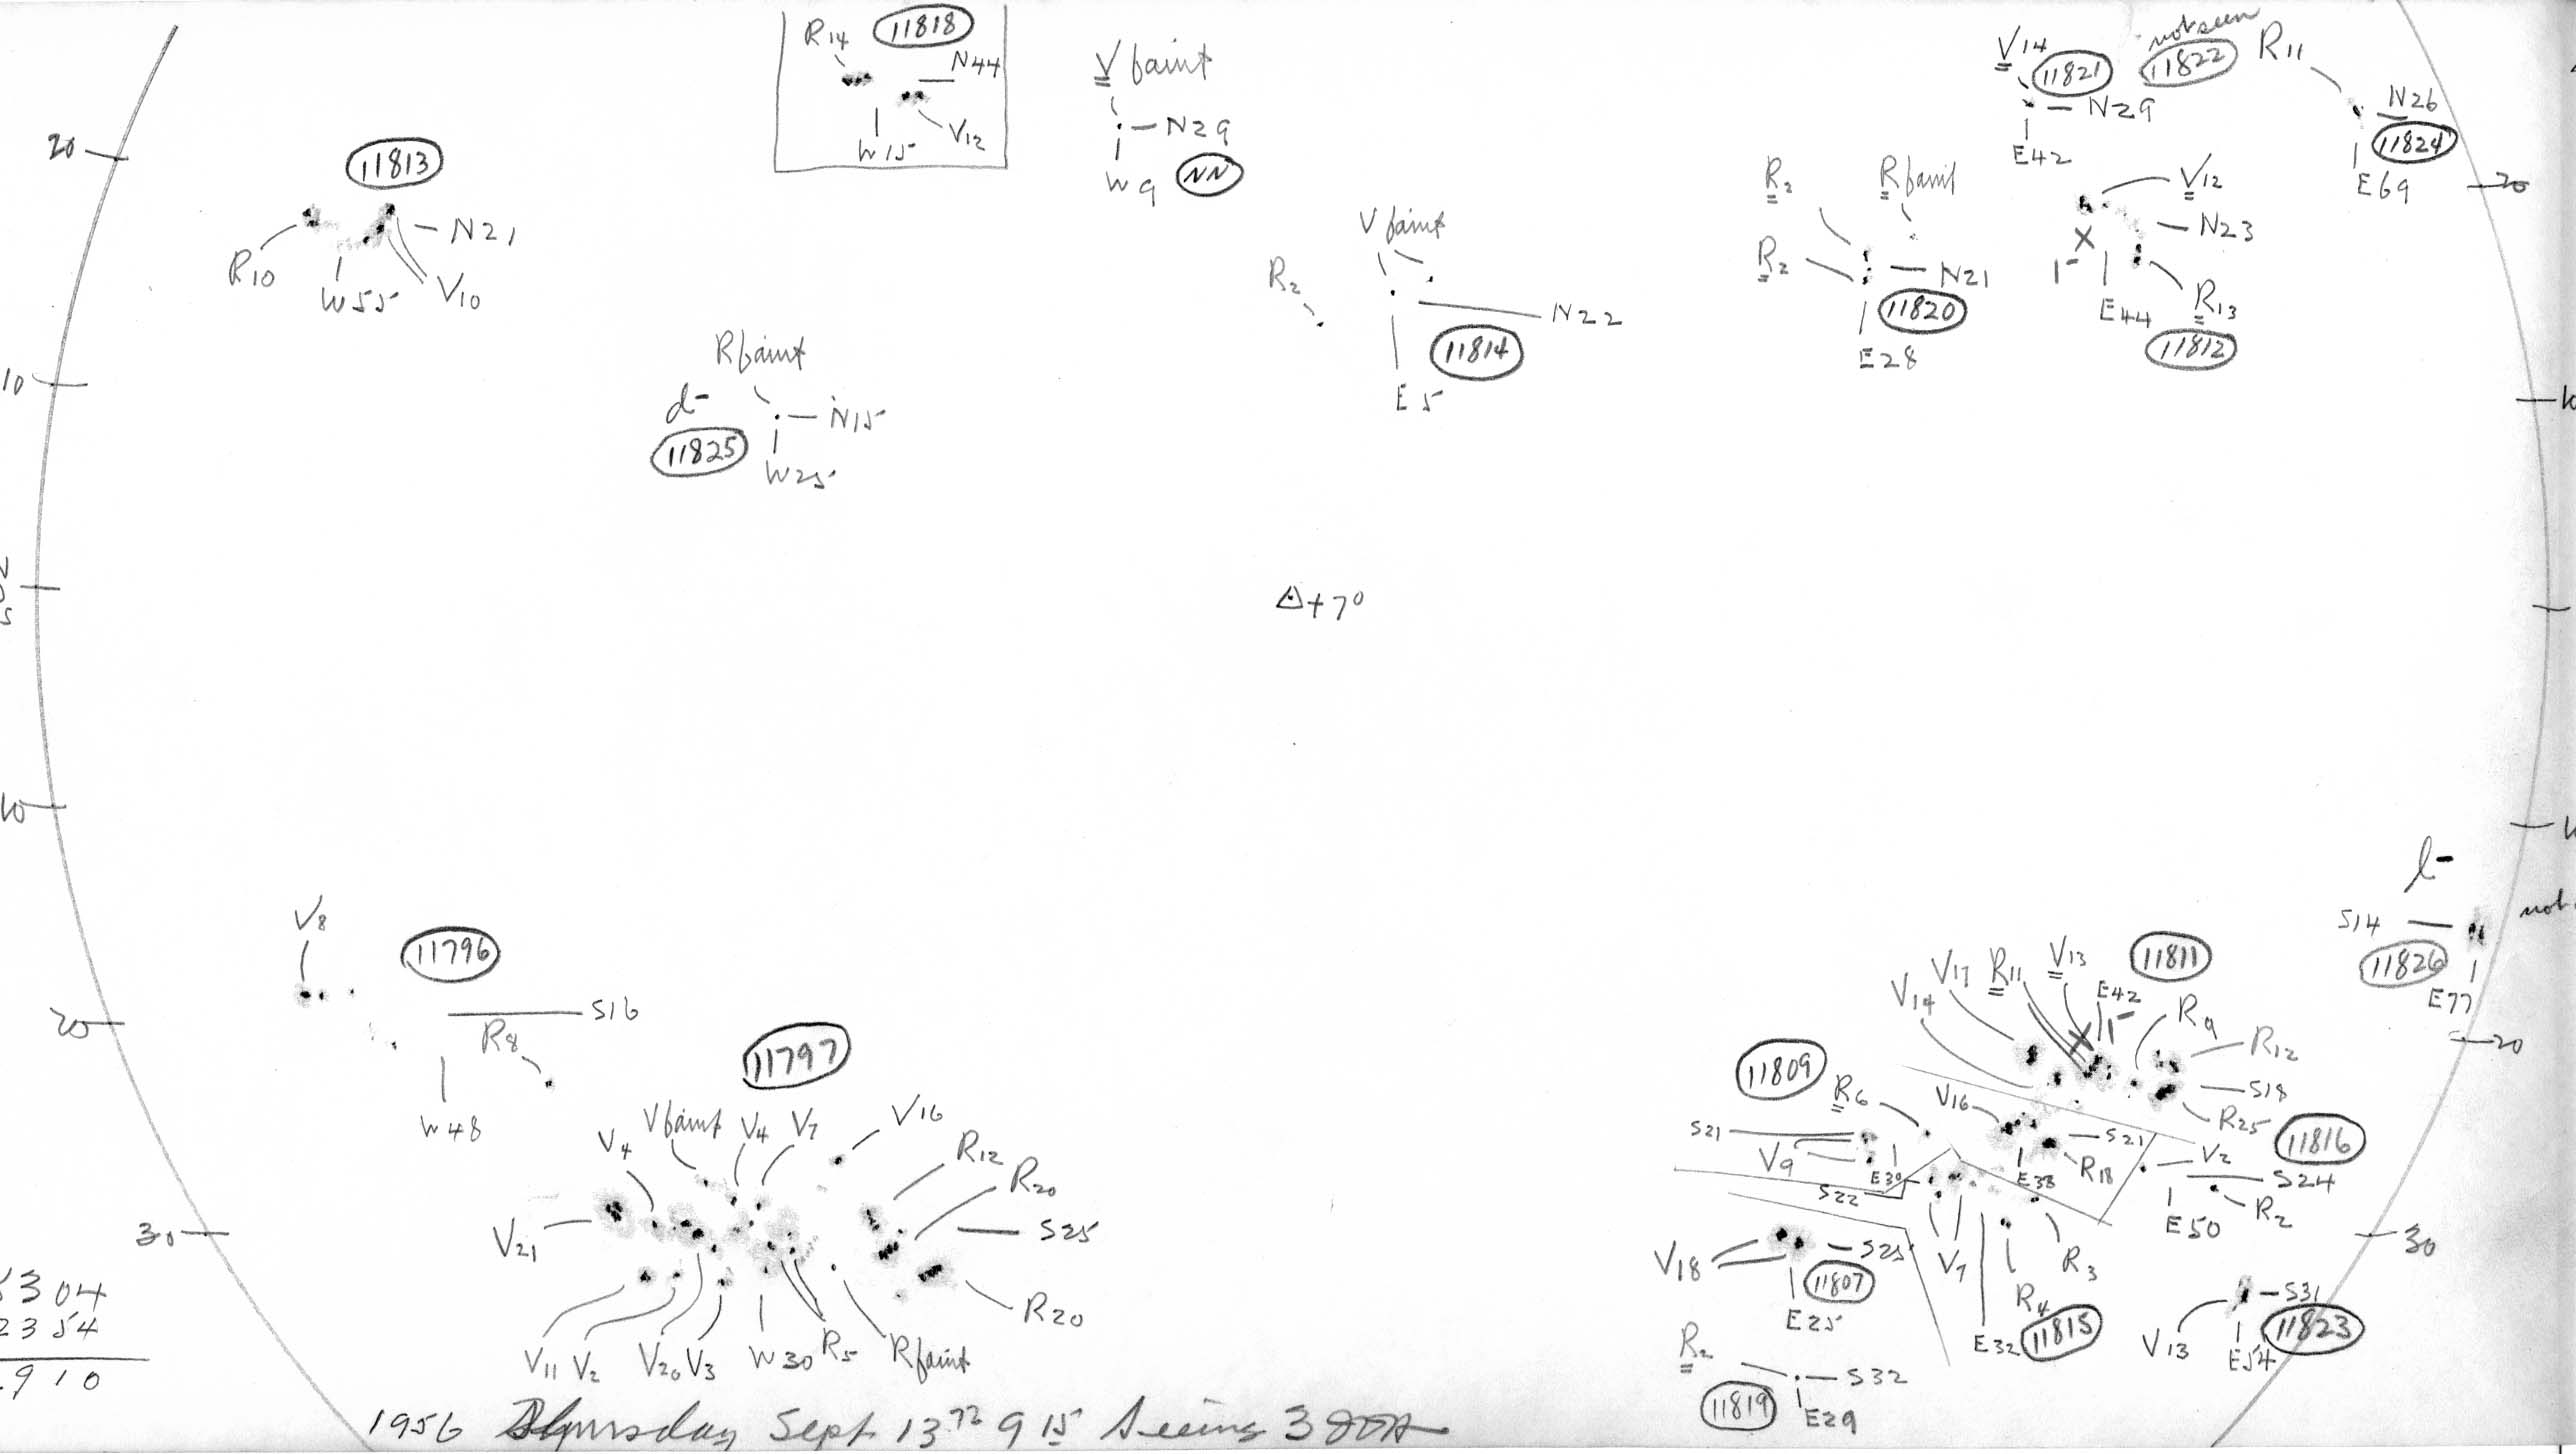 R14 11818
N44
W15 V12
V faint
N29
W9 NN
V14 11821
N29
E42
not seen
11822
R11
N26
11824
E69
20
20
11813
R10
W55
N21
V10
R2
R faint
R2
N21
11820
E28
V12
N23
X
1-
E44
R13
11812
V faint
R2
N22
11814
E5
10
R faint
d-
N15
11825
W25
△+7°
10
l-
S14
11826
E77
V8
11796
S16
R8
W48
20
20
11797
V4 V faint V4 V7 V16
R12
R20
V21
S25
R20
V11 V2 V20 V3 W30 R5 R faint
30
11811
V14 V17 R11 V13
E42
X 1-
R9
R12
S18
R25
11809
R6
S21
V9
E30
V16
S21
E38
R18
11816
V2
S24
E50
R2
S22
V18
S25
11807
E25
V7
R3
R4
E32
11815
30
V13
S31
11823
E54
R2
S32
11819
E29
304
2354
910
1956 Thursday Sept 13 9 15 Seeing 3